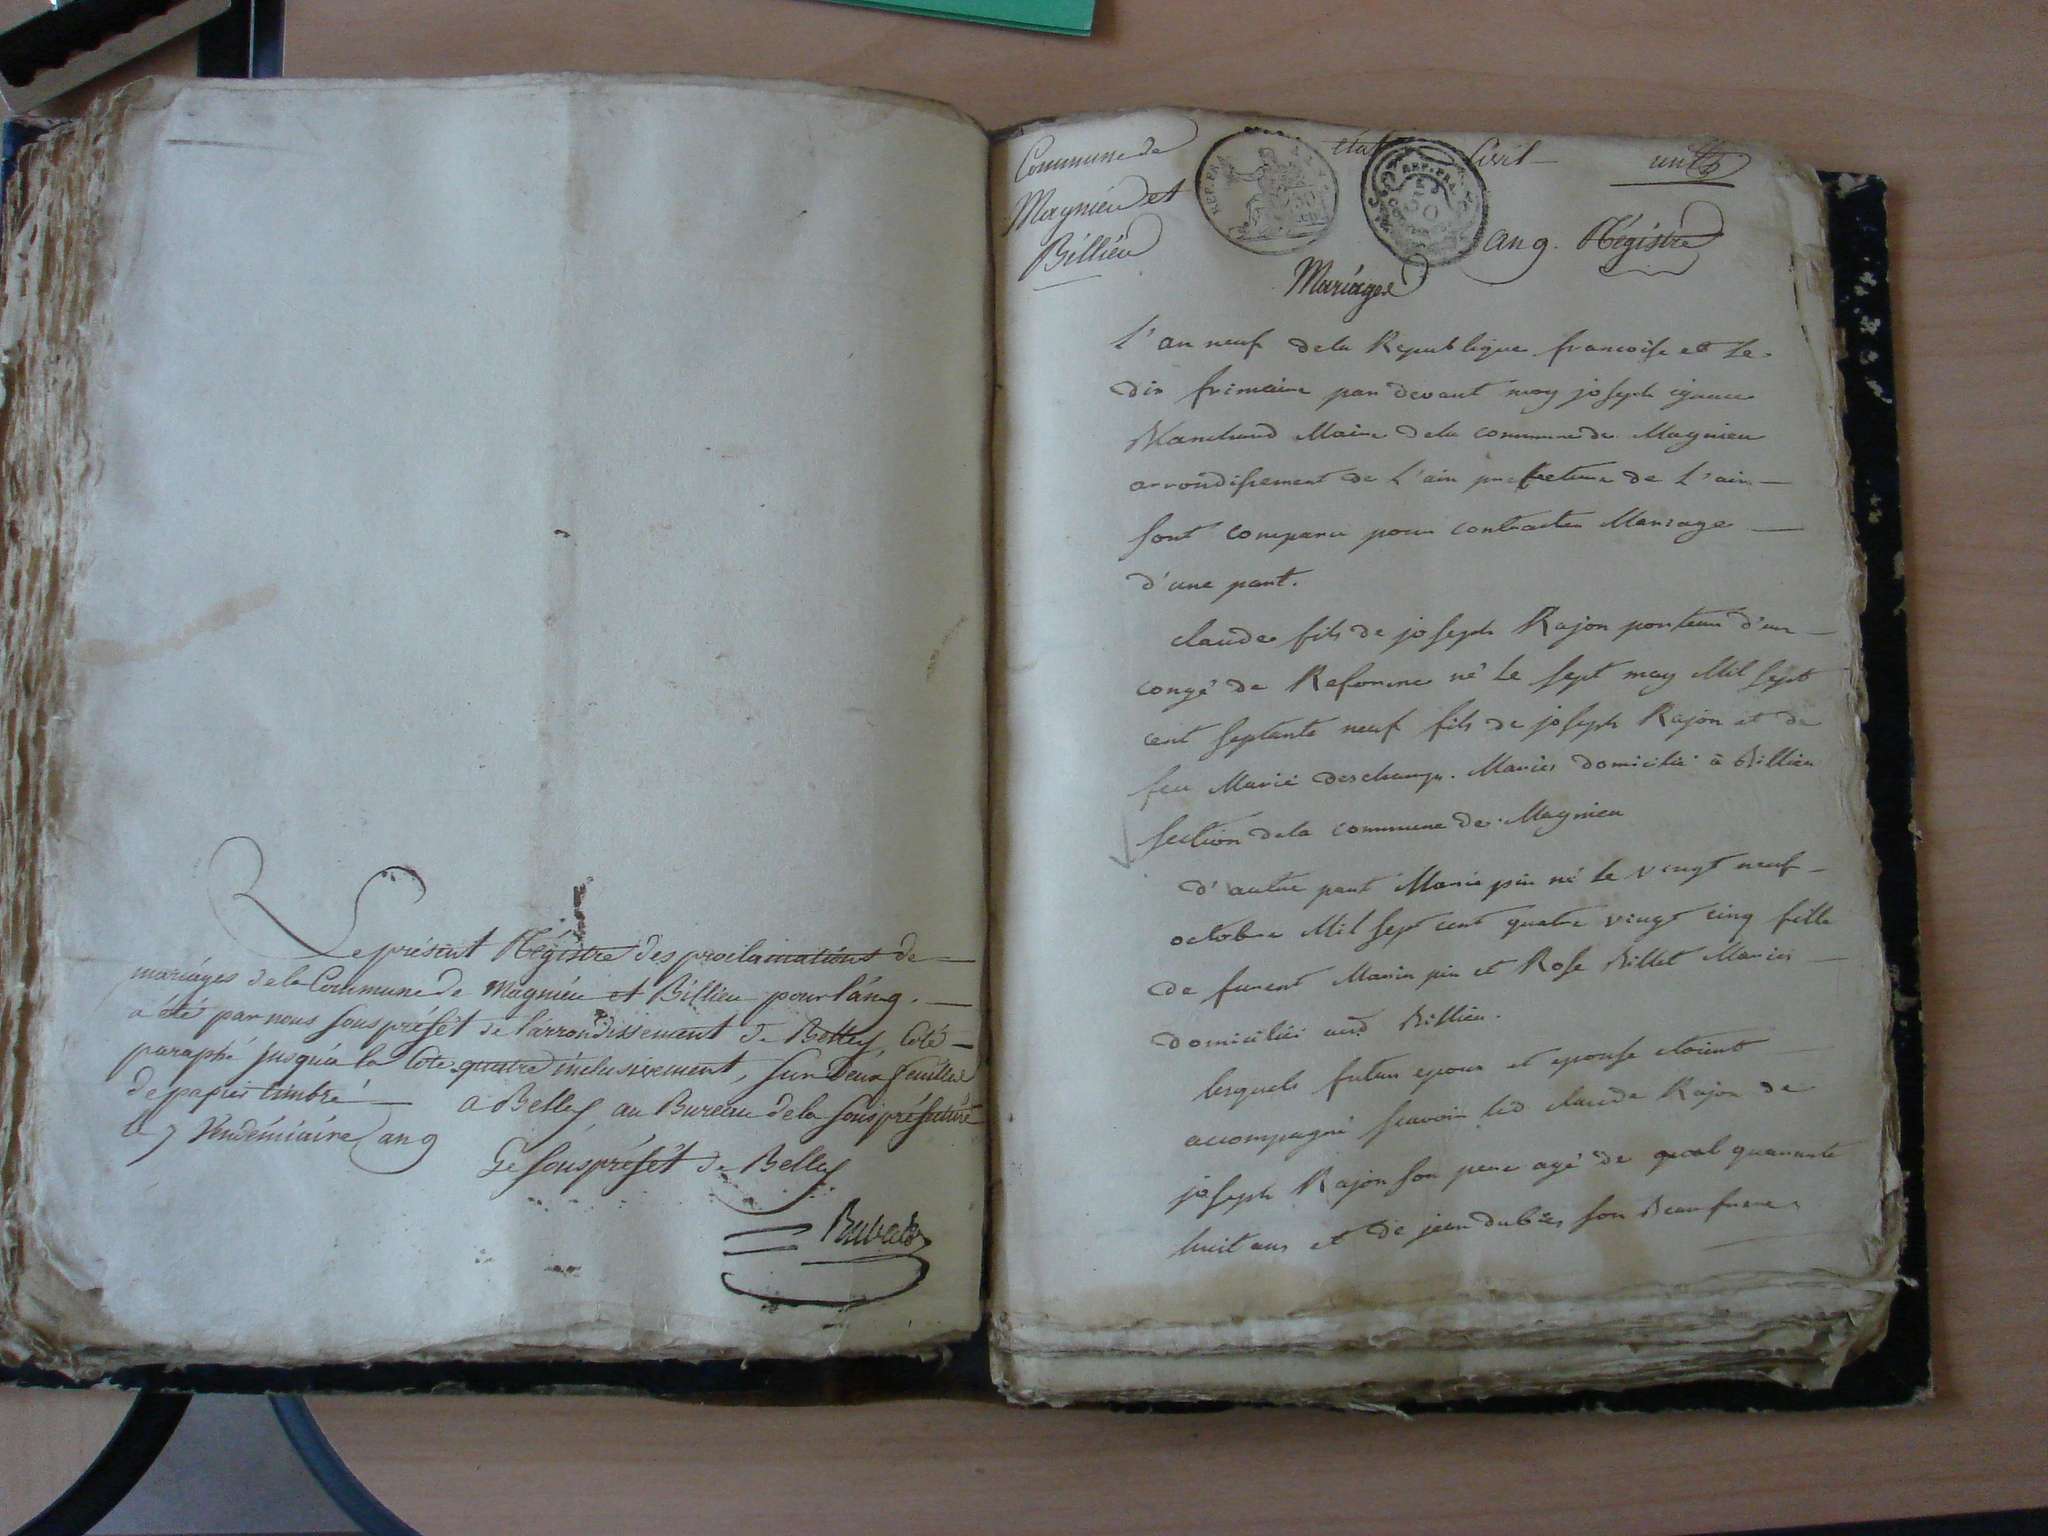 Le présent Régistre des proclamations de
mariáges de la Commune de Magnieu et Billieu pour l'an 9.
a été par nous souspréfét de l'arrondissement de Belley Coté
paraphé jusqu'a la Cote quatre inclusivement, sur deux feuilles
de papier timbré a Belley au Bureau de la souspréfecture
le 7 Vendémiaire an 9
Le souspréfét de Belley
Commune de
Magnieu et
Billieu
état Civil
REP. FRA.
50
REP. FRA.
50
an 9. Régistre
Mariages
L'an neuf de la Republique francoise et Le
dix frimaire par devant moy joseph ignace
Blanchard Maire de la commune de Magnieu
arrondissement de L'ain prefecture de L'ain
sont comparu pour contracter Mariage
d'une part.
claude fils de joseph Rajon porteur d'un
congé de Reforme né Le sept may Mil sept
cent septante neuf fils de joseph Rajon et de
feu Marie deschamps. Mariés domicilié à Billieu
section de la commune de Magnieu
d'autre part Marie pin né le vingt neuf
octobre Mil sept cent quatre vingt cinq fille
de furent Marin pin et Rose Billet Mariés
domiciliés aud Billieu.
lesquels futurs epoux et epouse etoient
accompagné scavoir led claude Rajon de
joseph Rajon son pere agé de quarante
huit ans et de jean dubois son Beau frere